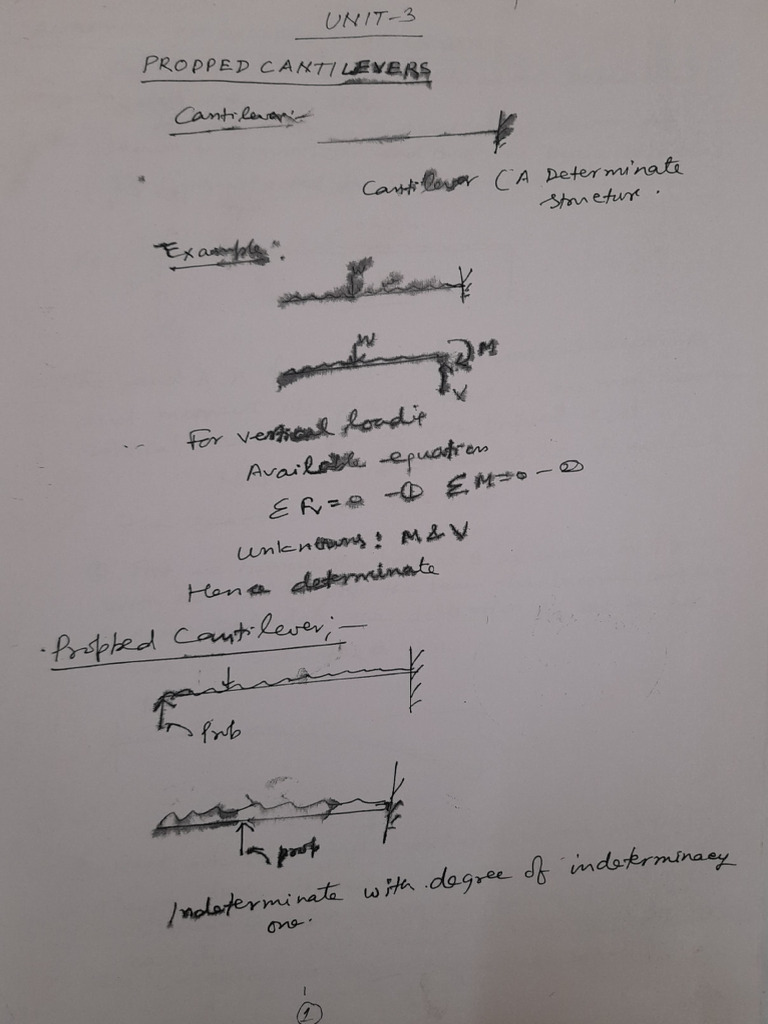 UNIT-3
PROPPED CANTILEVERS
Cantilever:-
Cantilever (A Determinate
structure.
Example:
W
M
V
For vertical loadig
Available equation
ΣFv=0 -① ΣM=0-②
Unknowns: M&V
Hence determinate
Propped Cantilever;-
Prob
prop
Indeterminate with degree of indeterminacy
one.
1